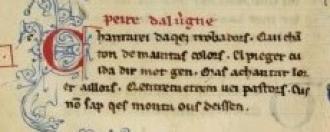 peire daluẏne
Chantarei daqez trobadors. Qui chã
ton de maintas colors. El pieger cu
ida dir mot gen. Mas achantar lor
er aillors. Qentremetren uei pastors. Cus
non sap qes montu ous deissen.